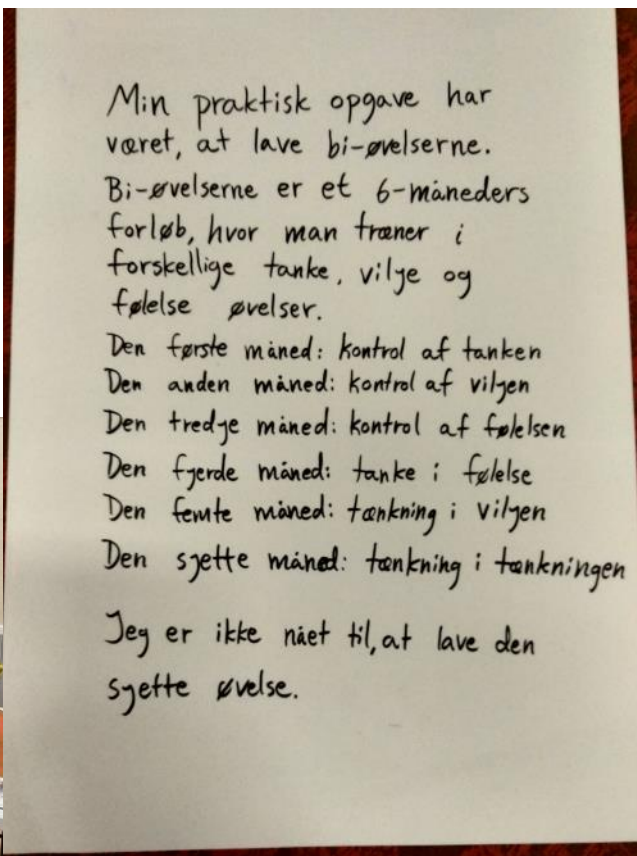 Min praktisk opgave har
været, at lave bi-øvelserne.
Bi-øvelserne er et 6-måneders
forløb, hvor man træner i
forskellige tanke, vilje og
følelse øvelser.
Den første måned: kontrol af tanken
Den anden måned: kontrol af viljen
Den tredje måned: kontrol af følelsen
Den fjerde måned: tanke i følelse
Den femte måned: tænkning i viljen
Den sjette måned: tænkning i tænkningen
Jeg er ikke nået til, at lave den
sjette øvelse.